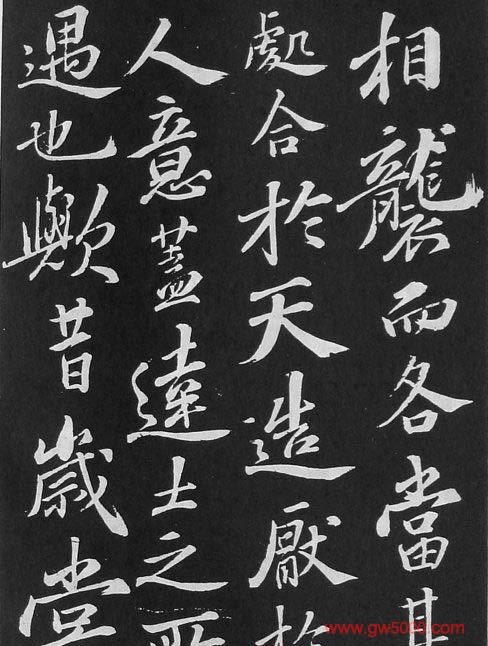 相襲而各當其
處合於天造厭於
人意蓋達士之所
遇也歟昔歲嘗
www.gw5000.com